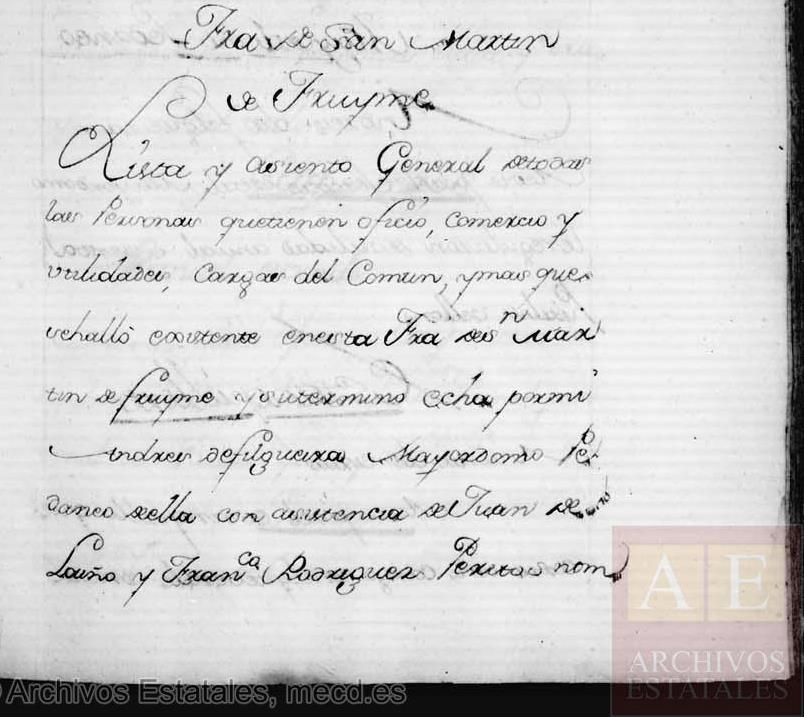 Fra de San Martin
de Fruyme
Lista y asiento General de todas
las Personas que tienen oficio, comercio y
utilidades, cargas del Comun, y mas que
se halló existente en esta Fra de Sn Mar
tin de fruyme y su termino echa por mi
Andres de filgueira Mayordomo Pe
daneo della con asistencia de Juan de
Louño y Franca Rodriguez Peritos nom
Archivos Estatales, mecd.es
AE
ARCHIVOS
ESTATALES